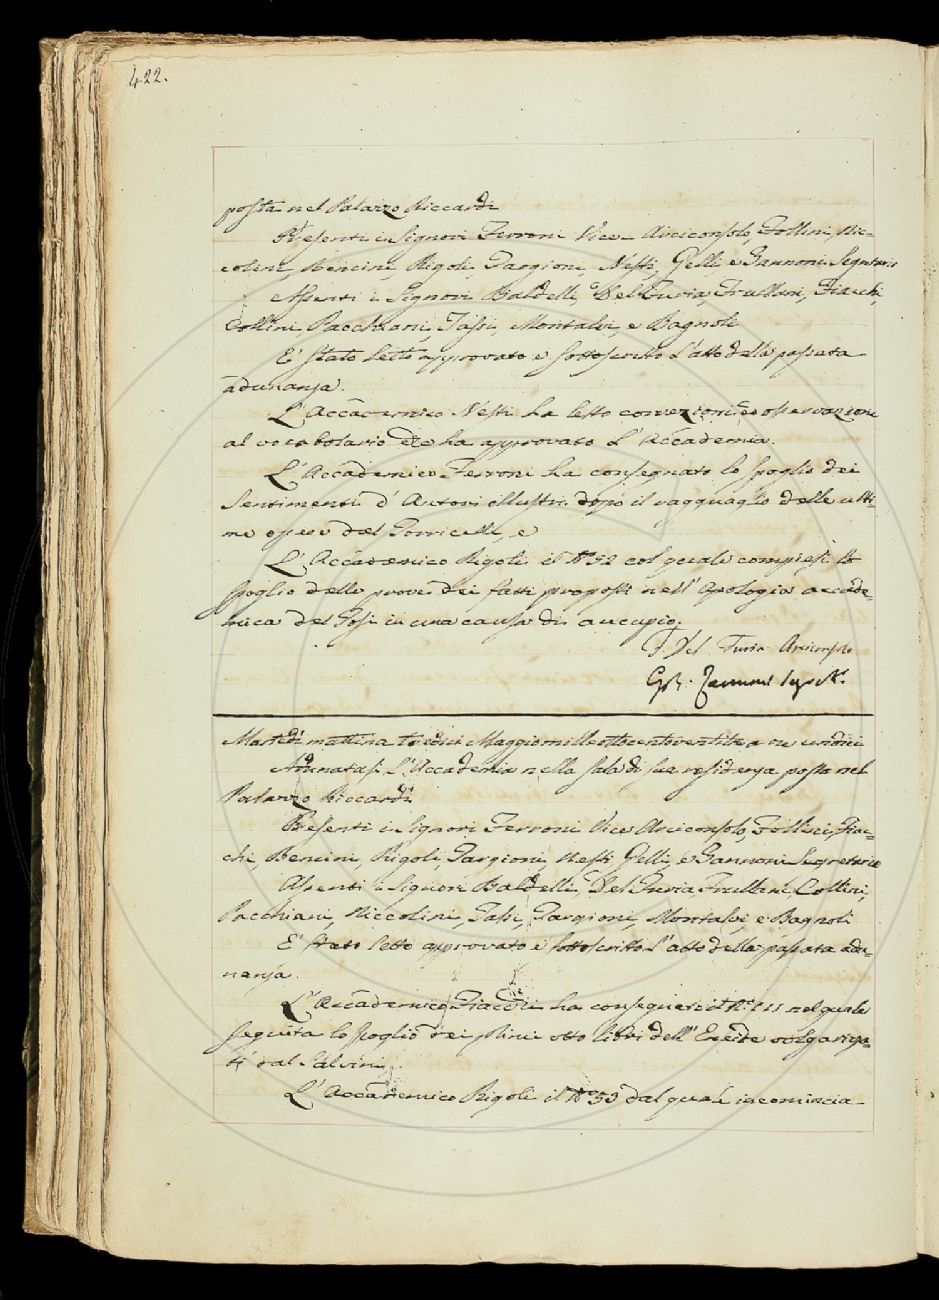 422.
posta nel Palazzo Riccardi
Presenti i Signori Ferroni Vice-Arciconsolo, Follini, Nic-
colini, Bencini, Rigoli, Targioni, Nesti, Gelli e Zannoni Segretario
Assenti i Signori Baldelli, Del Furia, Frullani, Fiacchi,
Collini, Pacchiani, Tassi, Montalvi, e Bagnoli
E' stato letto approvato e sottoscritto l'atto della passata
adunanza.
L'Accademico Nesti ha letto correzioni ed osservazioni
al vocabolario ha approvato l'Accademia.
L'Accademico Ferroni ha consegnato lo spoglio dei
Sentimenti d'Autori illustri dopo il ragguaglio delle ulti-
me opere del Torricelli, e
L'Accademico Rigoli il N.º 52 col quale compiesi lo
spoglio delle prove dei fatti proposti nell'Apologia accade-
mica del Tosi in una causa di aucupio.
F. Del Furia Arciconsolo
G. B. Zannoni Seg.
Martedì mattina tredici Maggio milleottocentoventitre a ore undici
Adunatasi L'Accademia nella sala di sua residenza posta nel
Palazzo Riccardi
Presenti i Signori Ferroni Vice Arciconsolo, Follini, Fiac-
chi, Bencini, Rigoli, Targioni, Nesti, Gelli, e Zannoni Segretario
Assenti i Signori Baldelli, Del Furia, Frullani, Collini,
Pacchiani, Niccolini, Tassi, Targioni, Montalvi, e Bagnoli
E' stato letto approvato e sottoscritto l'atto della passata adu-
nanza.
L'Accademico Fiacchi ha consegnato il N.º 111 nel quale
seguita lo spoglio dei primi otto libri dell'Eneide volgarizza-
ti dal Salvini
L'Accademico Rigoli il N.º 53 dal quale incomincia